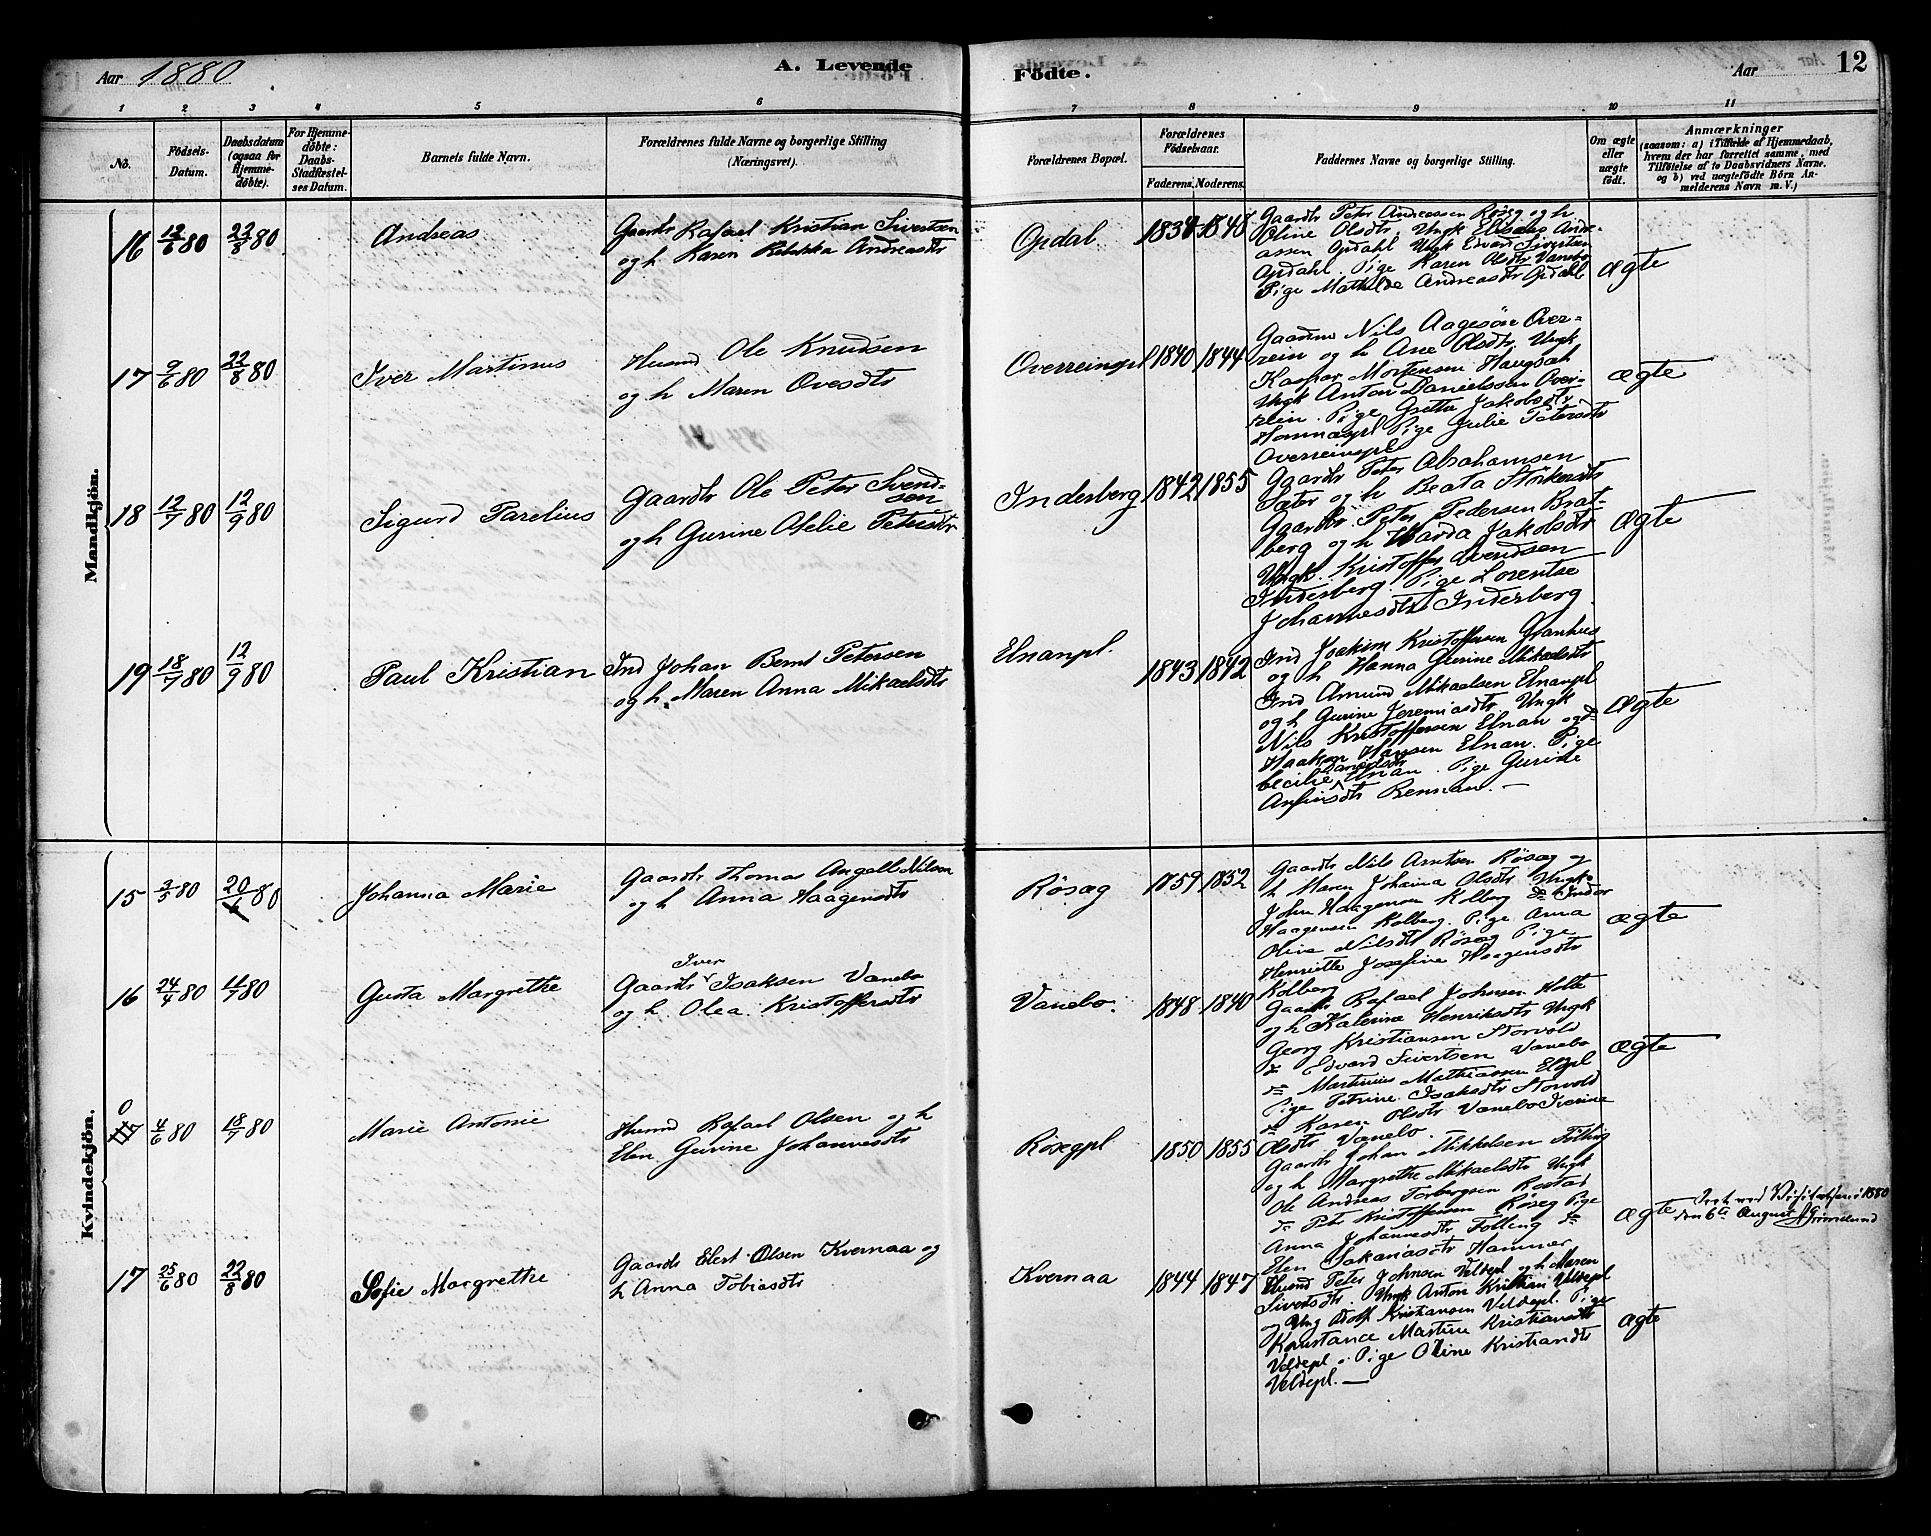 Aar 1880
A. Levende
Födte.
Aar
12
1 2 3 4 5 6 7 8 9 10 11
No.
Födsels-
Datum.
Daabsdatum
(ogsaa for
Hjemme-
döbte).
For Hjemme-
döbte:
Daabs-
Stadfæstel-
ses Datum.
Barnets fulde Navn.
Forældrenes fulde Navne og borgerlige Stilling
(Næringsvei).
Forældrenes Bopæl.
Forældrenes
Födselsaar.
Faderens. Moderens.
Faddernes Navne og borgerlige Stilling.
Om ægte
eller
uægte
födt.
Anmærkninger
(saasom: a) i Tilfælde af Hjemmedaab,
hvem der har forrettet samme, med
Tilföielse af to Daabsvidners Navne,
og b) ved uægtefödte Börn An-
melderens Navn m. V.)
Mandkjön.
16 12/6 80 22/8 80
Andreas
Gaardr Rafael Kristian Sivertsen
og h Karen Rebekka Andreasdtr
Opdal
1834 1848
Gaardr Peter Andreassen Røseg og h
Oline Olsdtr. Ungk Elisæus Andr-
assen Opdahl Ungk Edvard Sivertsen
Opdahl. Pige Karen Olsdtr Vanebo
Pige Mathilde Andreasdtr Opdahl
ægte
17 9/6 80 22/8 80
Iver Martinus
Husmd Ole Knudsen
og h Maren Ovesdtr
Overreinspl
1840 1844
Gaardm Nils Aagesøn Over-
rein og h Ane Olsdtr, Ungk
Kaspar Mortensen Haugsah
Ungk Anton Danielssen Over-
rein. Pige Grette Jakobsdtr
Hammerpl Pige Julie Petersdtr
Overreinspl
ægte
18 12/7 80 12/9 80
Sigurd Parelius
Gaardr Ole Peter Svend-
sen
og h Gurine Ofelie Petersdtr
Inderberg
1842 1855
Gaardr Peter Abrahamsen
Sæter og h Beata Størkersdtr
Gaardbr Peter Pedersen Brat-
berg og h Harda Jakobsdtr
Ungk. Kristoffer Svendsen
Inderberg. Pige Lorentse
Johannesdtr Inderberg
ægte
19 18/7 80 12/9 80
Paul Kristian
Ind Johan Bernt Petersen
og h. Maren Anna Mikaelsdtr
Elnanpl.
1843 1842
Ind Joakim Kristoffersen Granhus
og h Hanna Gurine Mikaelsdtr
Ind Amund Mikaelsen Elnanpl
og h Gurine Jeremiasdtr Ungk
Nils Kristoffersen Elnan og do
Haakon Hansen Elnan. Pige
Danielsdtr
Cecilie Elnan. Pige Gurine
Anfinsdtr Rennan. —
ægte
Kvindekjön.
15 3/5 80 20/6 80
Johanna Marie
Gaardr Thomas Angell Nilsen
og h Anna Haagensdtr
Røsæg
1859 1852
Gaardr Nils Arntsen Røsæg og
h Maren Johanna Olsdtr Ungk
John Haagensen Kolberg do Indor
Haagensen Kolberg. Pige Anna
Olive Nilsdtr Røsæg Pige
Henriette Josefine Haagensdtr
Kolberg
ægte
16 24/4 80 11/7 80
Gusta Margrethe
Iver
Gaardr Isaksen Vanebo
og h Olea Kristoffersdtr
Vanebo.
1848 1840
Gaardr Rafael Johnsen Holte
og h Katerine Henriksdtr Ungk
Georg Kristiansen Storvold
do Edvard Sivertsen Vanebo
do Martinius Mathiassen Elgpl
Pige Petrine Isaksdtr Storvold
do Karen Olsdtr Vanebo Iverine
Olsdtr Vanebo.
ægte
0
4/6 80 18/7 80
Marie Antonie
Husmd Rafael Olsen og h
Elen Gurine Johannesdtr
Røsegpl
1850 1855
Gaardr Johan Mikkelsen Følling
og h Margrethe Mikaelsdtr Ungk
Ole Andreas Torbergsen Rostad
do Petr Kristoffersen Røseg Pige
Anna Johannesdtr Følling do
Elen Sakariasdtr Hammer
ægte
den 6te August
17 25/6 80 22/8 80
Sofie Margrethe
Gaardr Elert Olsen Kvernaa og
h Anna Tobiasdtr
Kvernaa
1844 1847
Husmd Peter Johnsen Veldepl og h Maren
Sivertsdtr. Ungk Anton Kristian Veldepl
og Ung Adolf Kristiansen Veldepl. Pige
Konstance Martine Kristiansdtr
Veldepl. Pige Oline Kristiansdtr
Veldepl. —
ægte